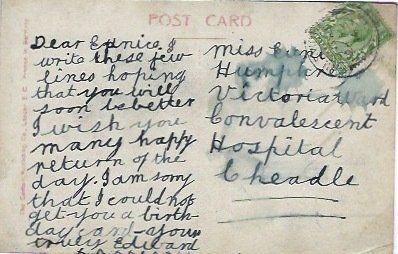 POST CARD
Dear Eunice I
write these few
lines hoping
that you will
soon be better
I wish you
many happy
return of the
day. I am sorry
that I could not
get you a birth-
day card - your
truly Edward
Miss Eunice
Humphre
Victoria Ward
Convalescent
Hospital
Cheadle